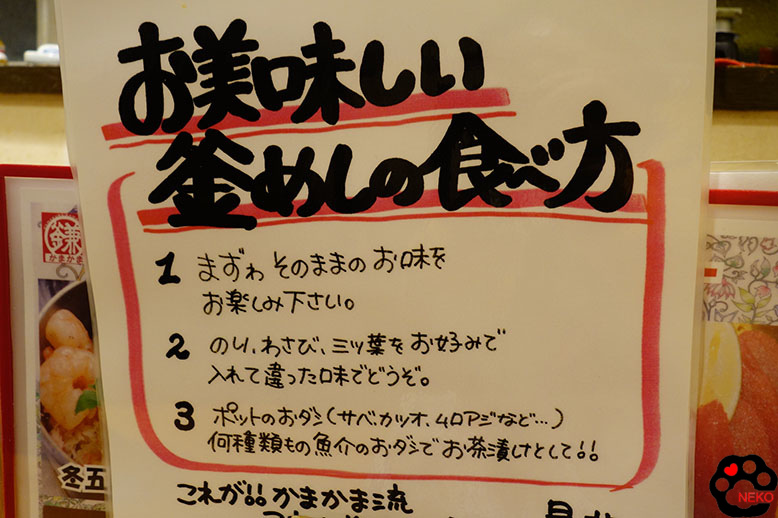 お美味しい
釜めしの食べ方
1 まずわ そのままの お味を
お楽しみ下さい。
2 のり、わさび、三ッ葉を お好みで
入れて違った味でどうぞ。
3 ポットのおダシ(サベ、カツオ、ムロアジなど…)
何種類もの魚介のおダシで お茶漬けとして!!
これが!! かまかま流
鎌
かまかま
冬五
NEKO